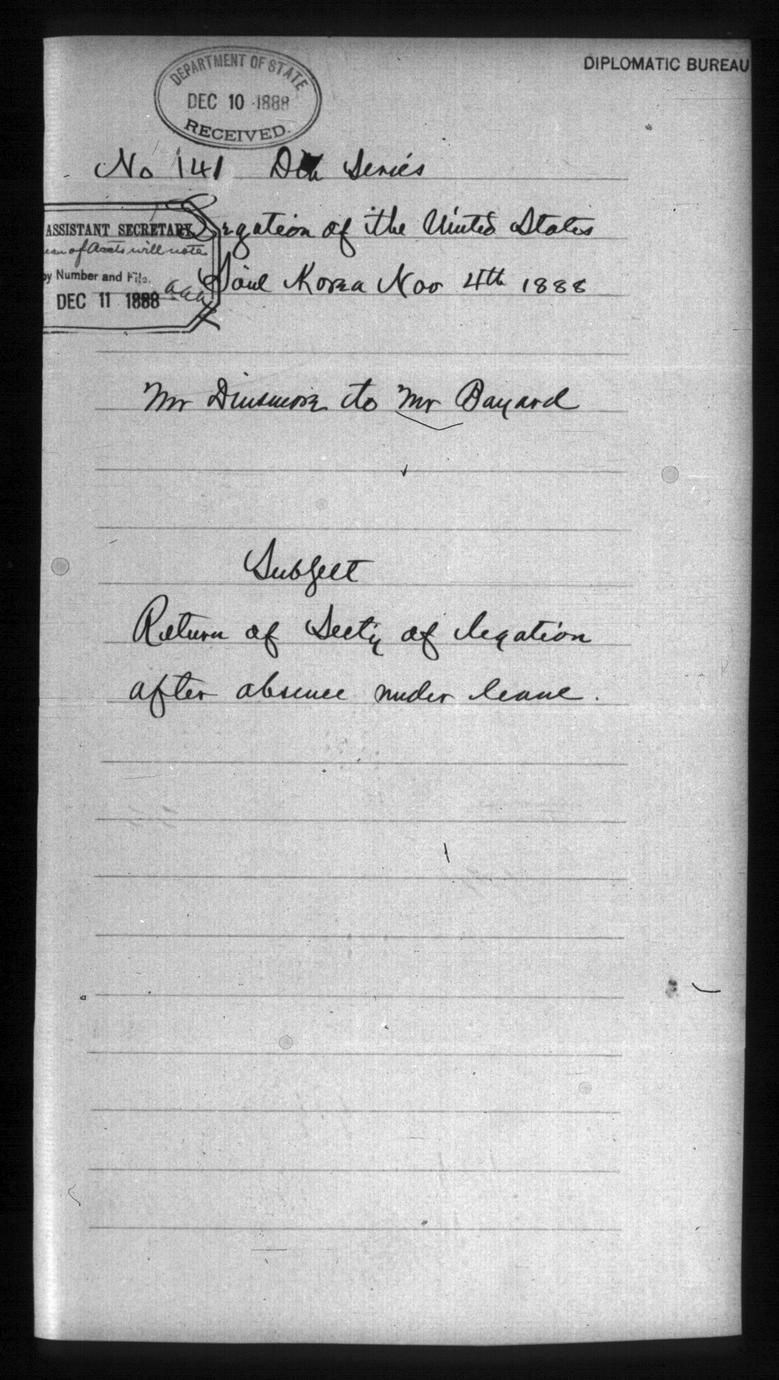 DIPLOMATIC BUREAU
DEPARTMENT OF STATE
DEC 10 1888
RECEIVED.
No 141 Series
Legation of the United States
Söul Korea Nov 4th 1888
ASSISTANT SECRETARY
of Accts will note
by Number and File.
DEC 11 1888
AAA
Mr Dinsmore to Mr Bayard
Subject
Return of Secty of legation
after absence under leave.